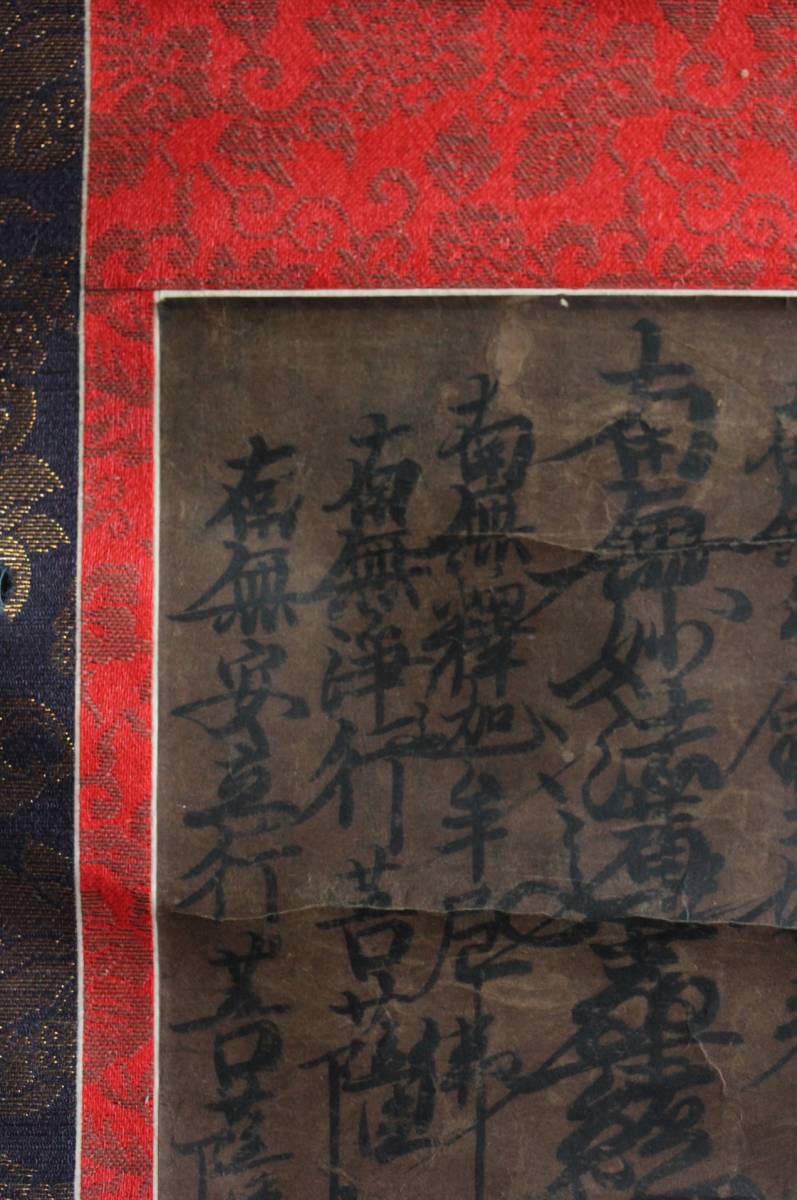 南無妙法蓮華経
南無釋迦牟尼佛
南無浄行菩薩
南無安立行菩薩